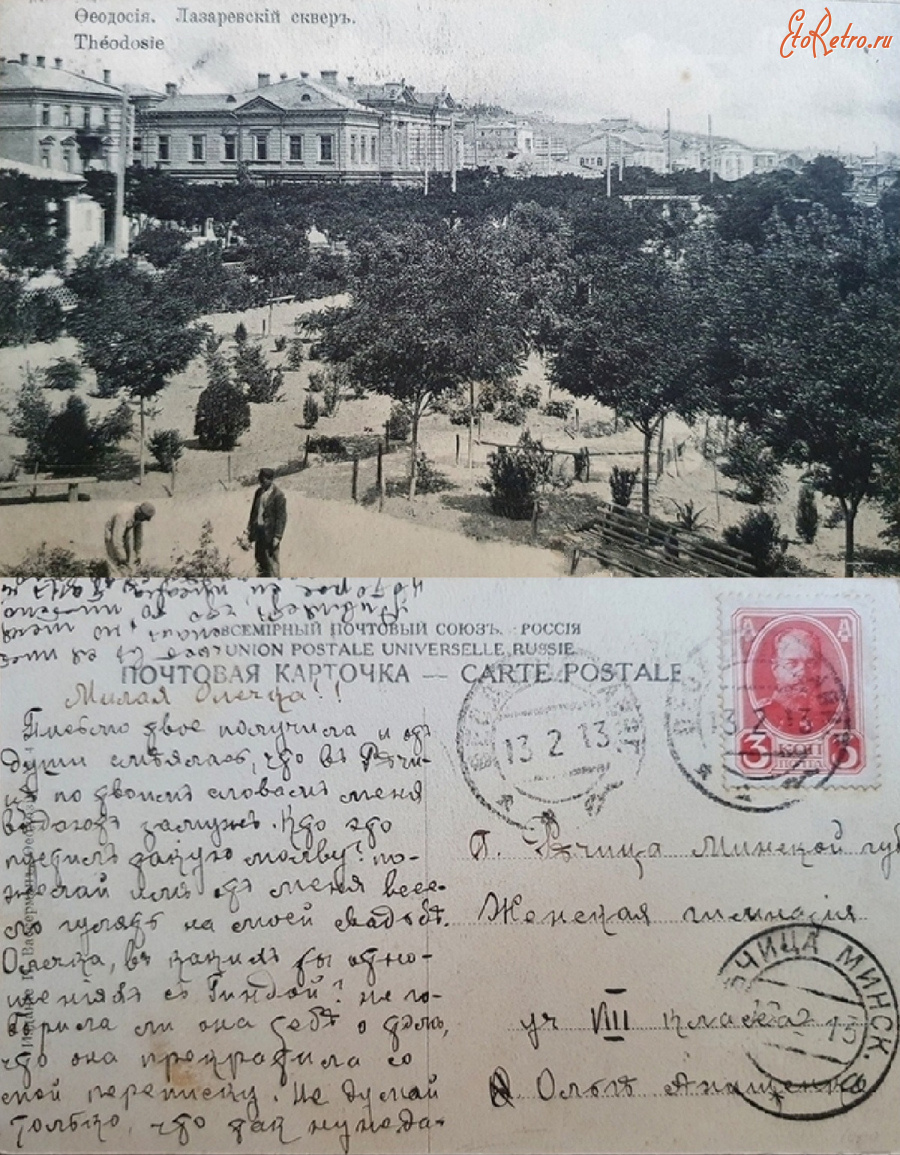 Ѳеодосія. Лазаревскій скверъ.
Théodosie
EtoRetro.ru
ВСЕМІРНЫЙ ПОЧТОВЫЙ СОЮЗЪ. РОССІЯ
UNION POSTALE UNIVERSELLE RUSSIE
ПОЧТОВАЯ КАРТОЧКА — CARTE POSTALE
Милая Олечка!!
Письмо твое получила и отъ
души смѣялась, что въ Рѣчи-
цѣ по твоимъ словамъ меня
выдаютъ замужъ. Кто это
пустилъ такую молву? по-
желай имъ отъ меня весе-
ло гулять на моей свадьбѣ.
Олечка, въ какихъ ты отно-
шеніяхъ съ Гиндой? не го-
ворила ли она тебѣ о томъ,
что она прекратила со
мной переписку. Не думай
только, что так
13 2 13
13 2 13
3 КОП 3
ПОЧТА
г. Рѣчица Минской губ
Женская гимназія
уч VIII класса
Ольгѣ Анищенко
РѢЧИЦА МИНСК.
2 13